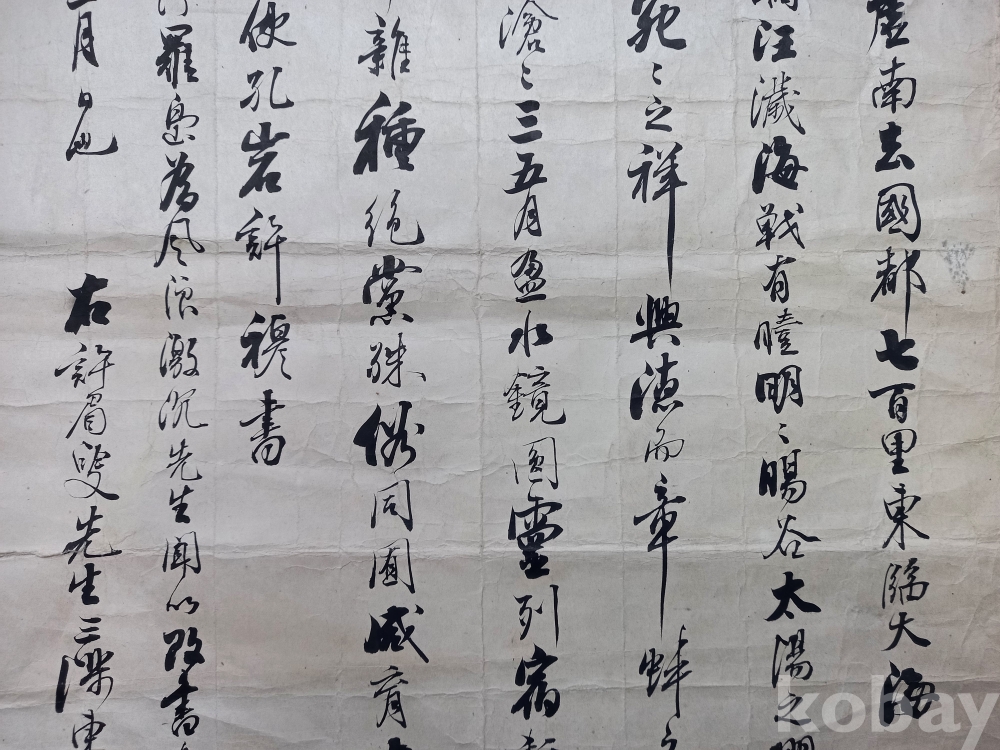 墟南去國都七百里東臨大海
汪濊海戦有曀明〻暘谷太陽之門
宛〻之祥興徳而章蚌之
滄〻三五月盈水鏡圓靈列宿
雜種絶黨殊俗同囿咸育
使孔岩許穆書
羅島為風浪激沉先生聞以改書
月
右許眉叟先生三陟東
kobay